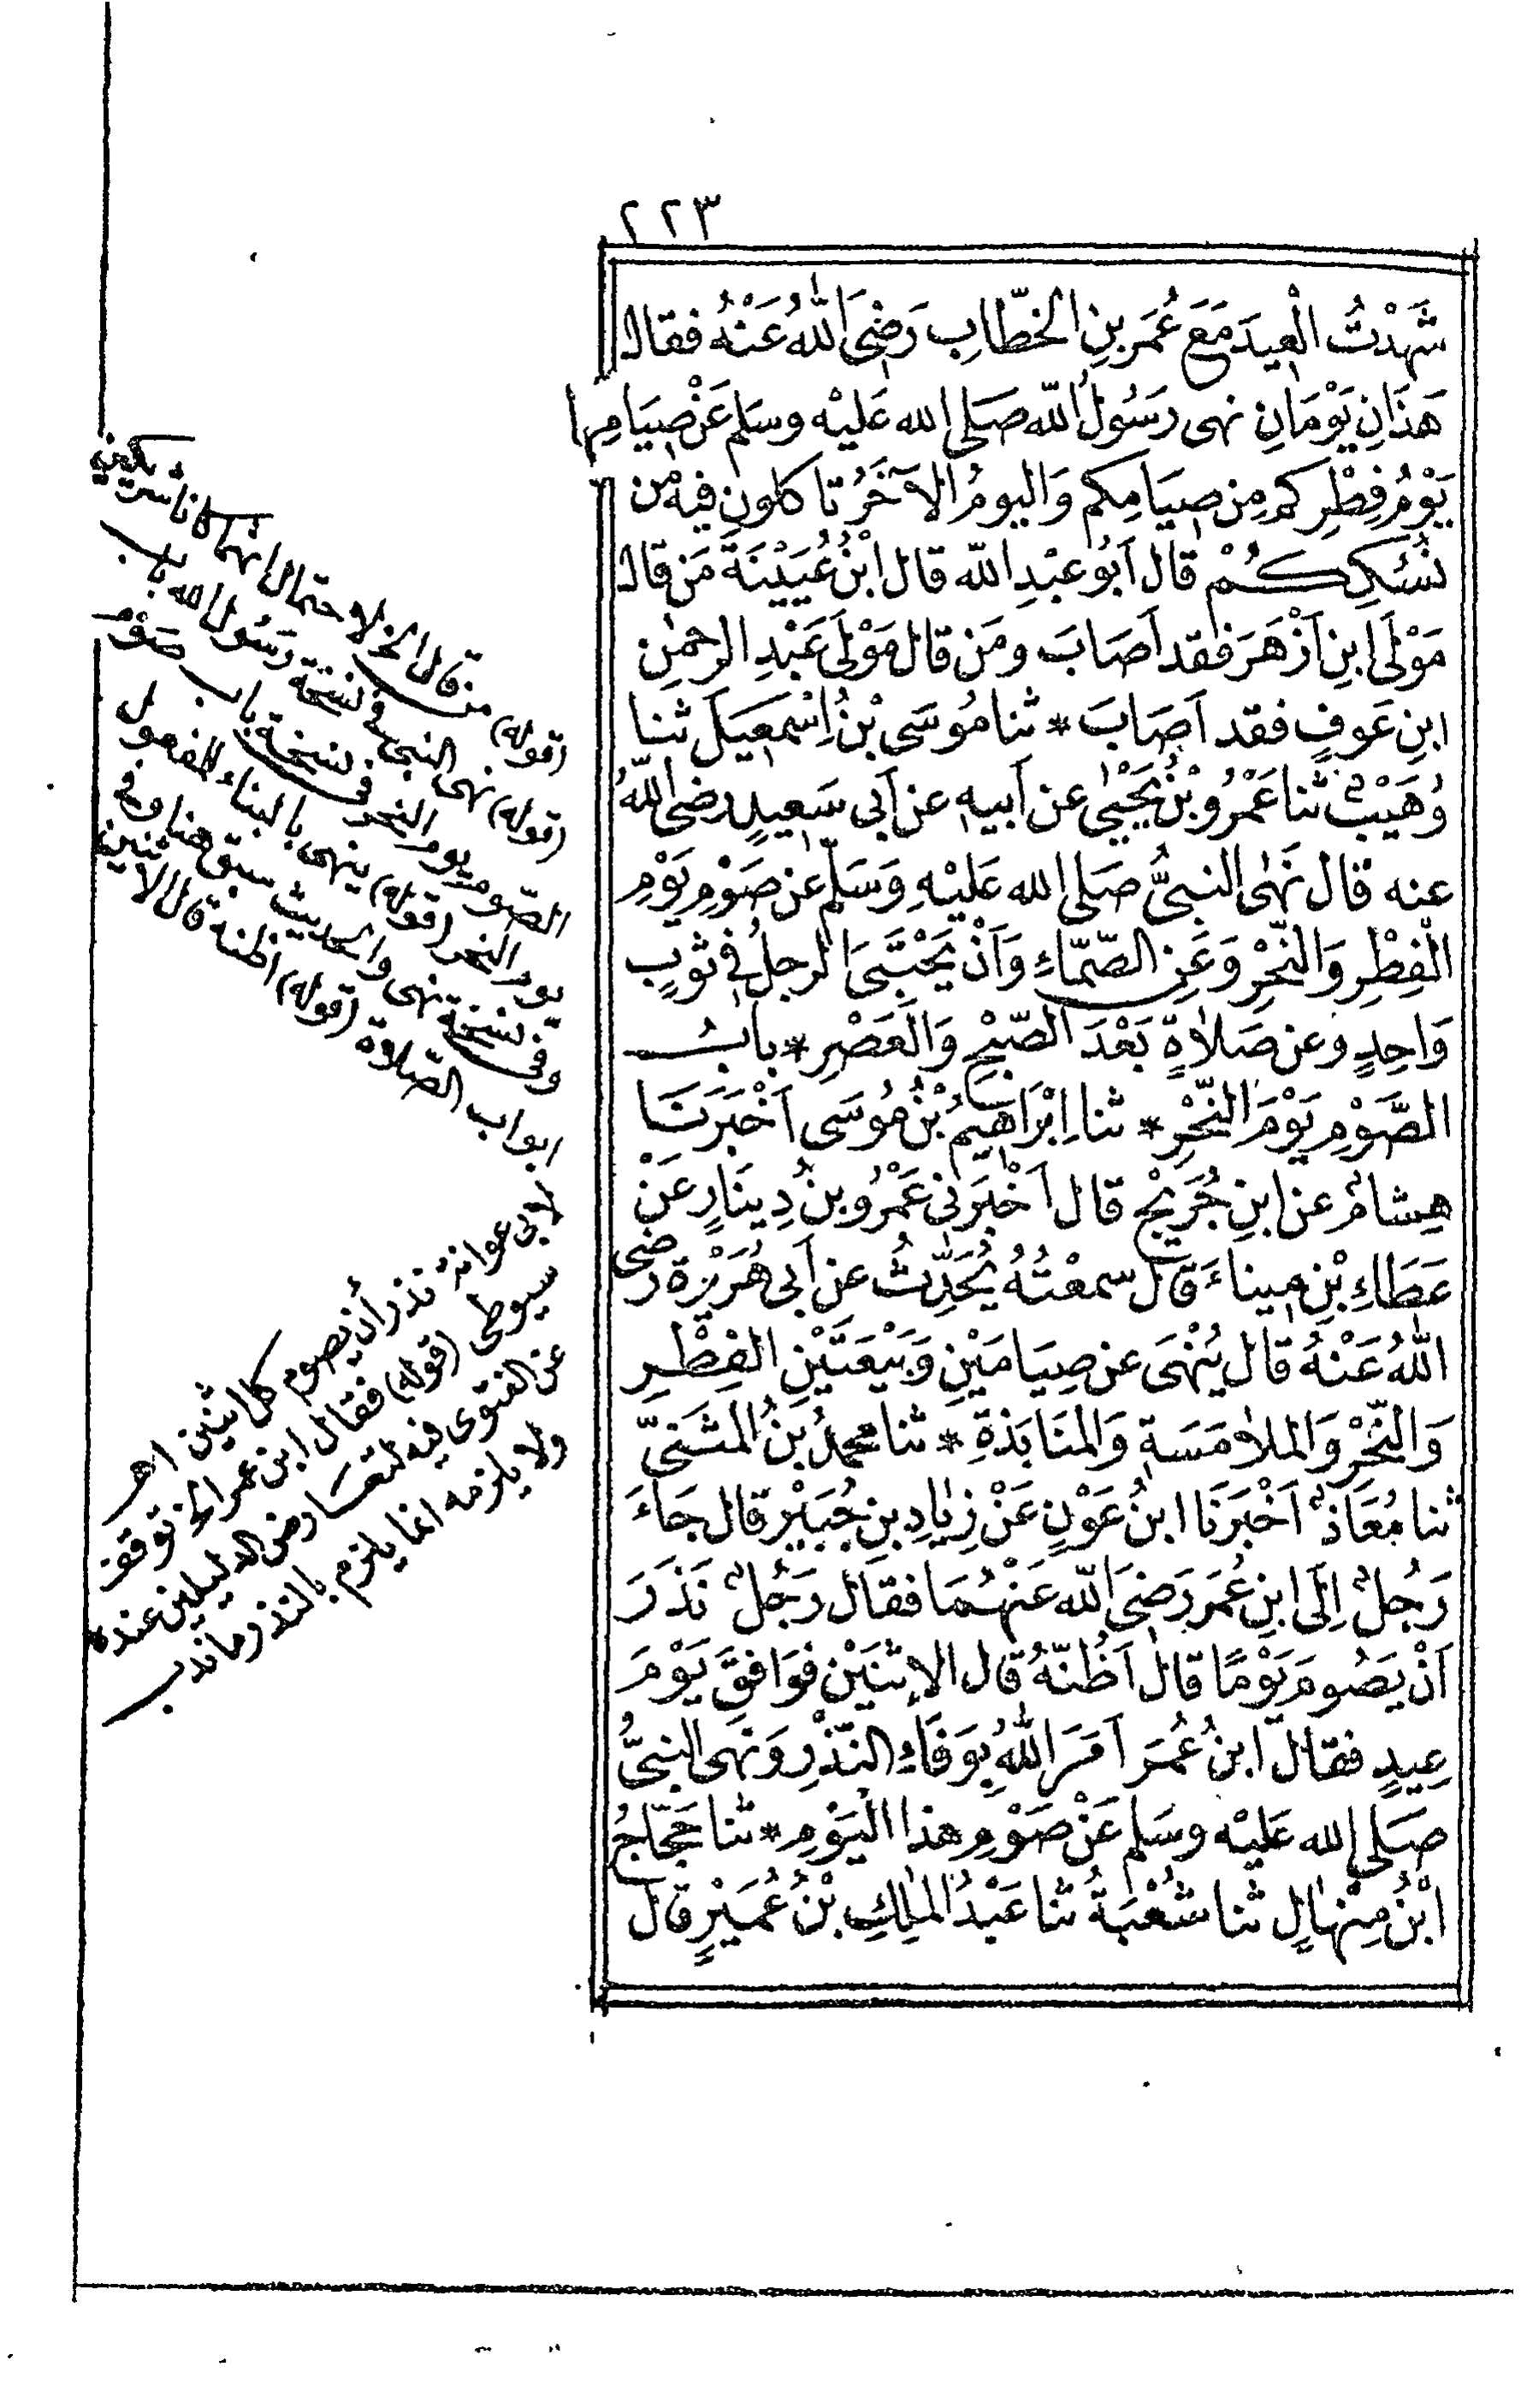 ٢٢٣
شَهِدْتُ الْعِيدَ مَعَ عُمَرَ بنِ الخطّابِ رَضِىَ اللّٰهُ عَنْهُ فقال
هَذَانِ يَوْمَانِ نهى رَسُولُ اللّٰه صَلى الله عَليْه وسَلم عَنْ صِيَامِهِما
يَوْمُ فِطْرِكم مِن صِيَامِكم وَاليومُ الآخَرُ تاكلونَ فيه من
نُسُكِكُمْ قال اَبُو عبْدِ الله قال ابْنُ عُيَيْنَةَ مَن قال
مَوْلَى ابنِ اَزْهَرَ فقد اَصَابَ ومَن قال مَوْلَى عَبْدِ الرحمٰن
ابنِ عَوفٍ فقد اَصَابَ * ثنا مُوسَى بْنُ اِسْمٰعِيلَ ثنا
وُهَيْبٌ ثنا عَمْرُو بْنُ يَحْيَى عن اَبيه عن اَبى سَعيدٍ رضى اللّٰهُ
عنه قال نَهَى النبىُّ صَلى الله عَليْهِ وَسَلّم عن صَوْمِ يَوْمِ
الْفِطْرِ وَالنّحْرِ وَعَنِ الصّمّاءِ وَاَنْ يَحْتَبِىَ الرجلُ فى ثوبٍ
وَاحِدٍ وعن صَلاةٍ بَعْدَ الصّبْحِ وَالعَصْرِ * بابُ
الصَّوْمِ يَوْمَ النّحْرِ * ثنا اِبْرَاهِيمُ بْنُ مُوسَى اَخْبَرَنَا
هِشامٌ عن ابنِ جُرَيْجٍ قال اَخْبَرَنى عَمْرُو بنُ دِينَارٍ عَنْ
عَطَاءِ بْنِ مِيناءَ قال سمعْتُهُ يُحَدِّثُ عن اَبى هُرَيْرَة رضى
اللّٰهُ عَنْهُ قال يُنْهَى عن صِيَامَيْنِ وَبَيْعَتَيْنِ الفِطْرِ
وَالنّحْرِ وَالملامَسَةِ وَالمنَابَذةِ * ثنا محمدُ بنُ المثَنىّ
ثنا مُعَاذٌ اَخْبَرَنَا ابنُ عَوْنٍ عَنْ زِيَادِ بنِ جُبَيْرٍ قال جَاءَ
رَجُلٌ اِلَى ابنِ عُمَرَ رَضِىَ اللّٰه عَنْهُمَا فقال رَجُلٌ نَذَرَ
اَنْ يَصُومَ يَوْمًا قال اَظُنّهُ قال الاِثنَيْنِ فوَافقَ يَوْمَ
عِيدٍ فقال ابنُ عُمَرَ اَمَرَ اللّٰهُ بِوَفَاءِ النّذْرِ وَنَهى النبىُّ
صَلى الله عَليْه وسَلم عَنْ صَوْمِ هذا اليَوْمِ * ثنا حَجّاجُ
ابْنُ مِنْهالٍ ثنا شُعْبَةُ ثنا عَبْدُ الملِكِ بْنُ عُمَيْرٍ قال
(قوله) من قال الخ لاحتمال انهما كانا شريكين
(قوله) نهى النبى فى نسخة رسول الله باب
الصّوم يوم النحر فى نسخة باب صَوْم
يوم النحر (قوله) ينهى بالبناء للمفعول
وفى نسخة نهى والحديث سبق هنا وفى
ابواب الصّلاة (قوله) اظنه قال الاثنين
لابى عوانة نذر أن يصوم كل اثنين اهـ
سيوطى (قوله) فقال ابن عمر الخ توقف
عن الفتوى فيه لتعارض الدليلين عنده
ولا يلزمه انما يلزم بالنذر ما ندب